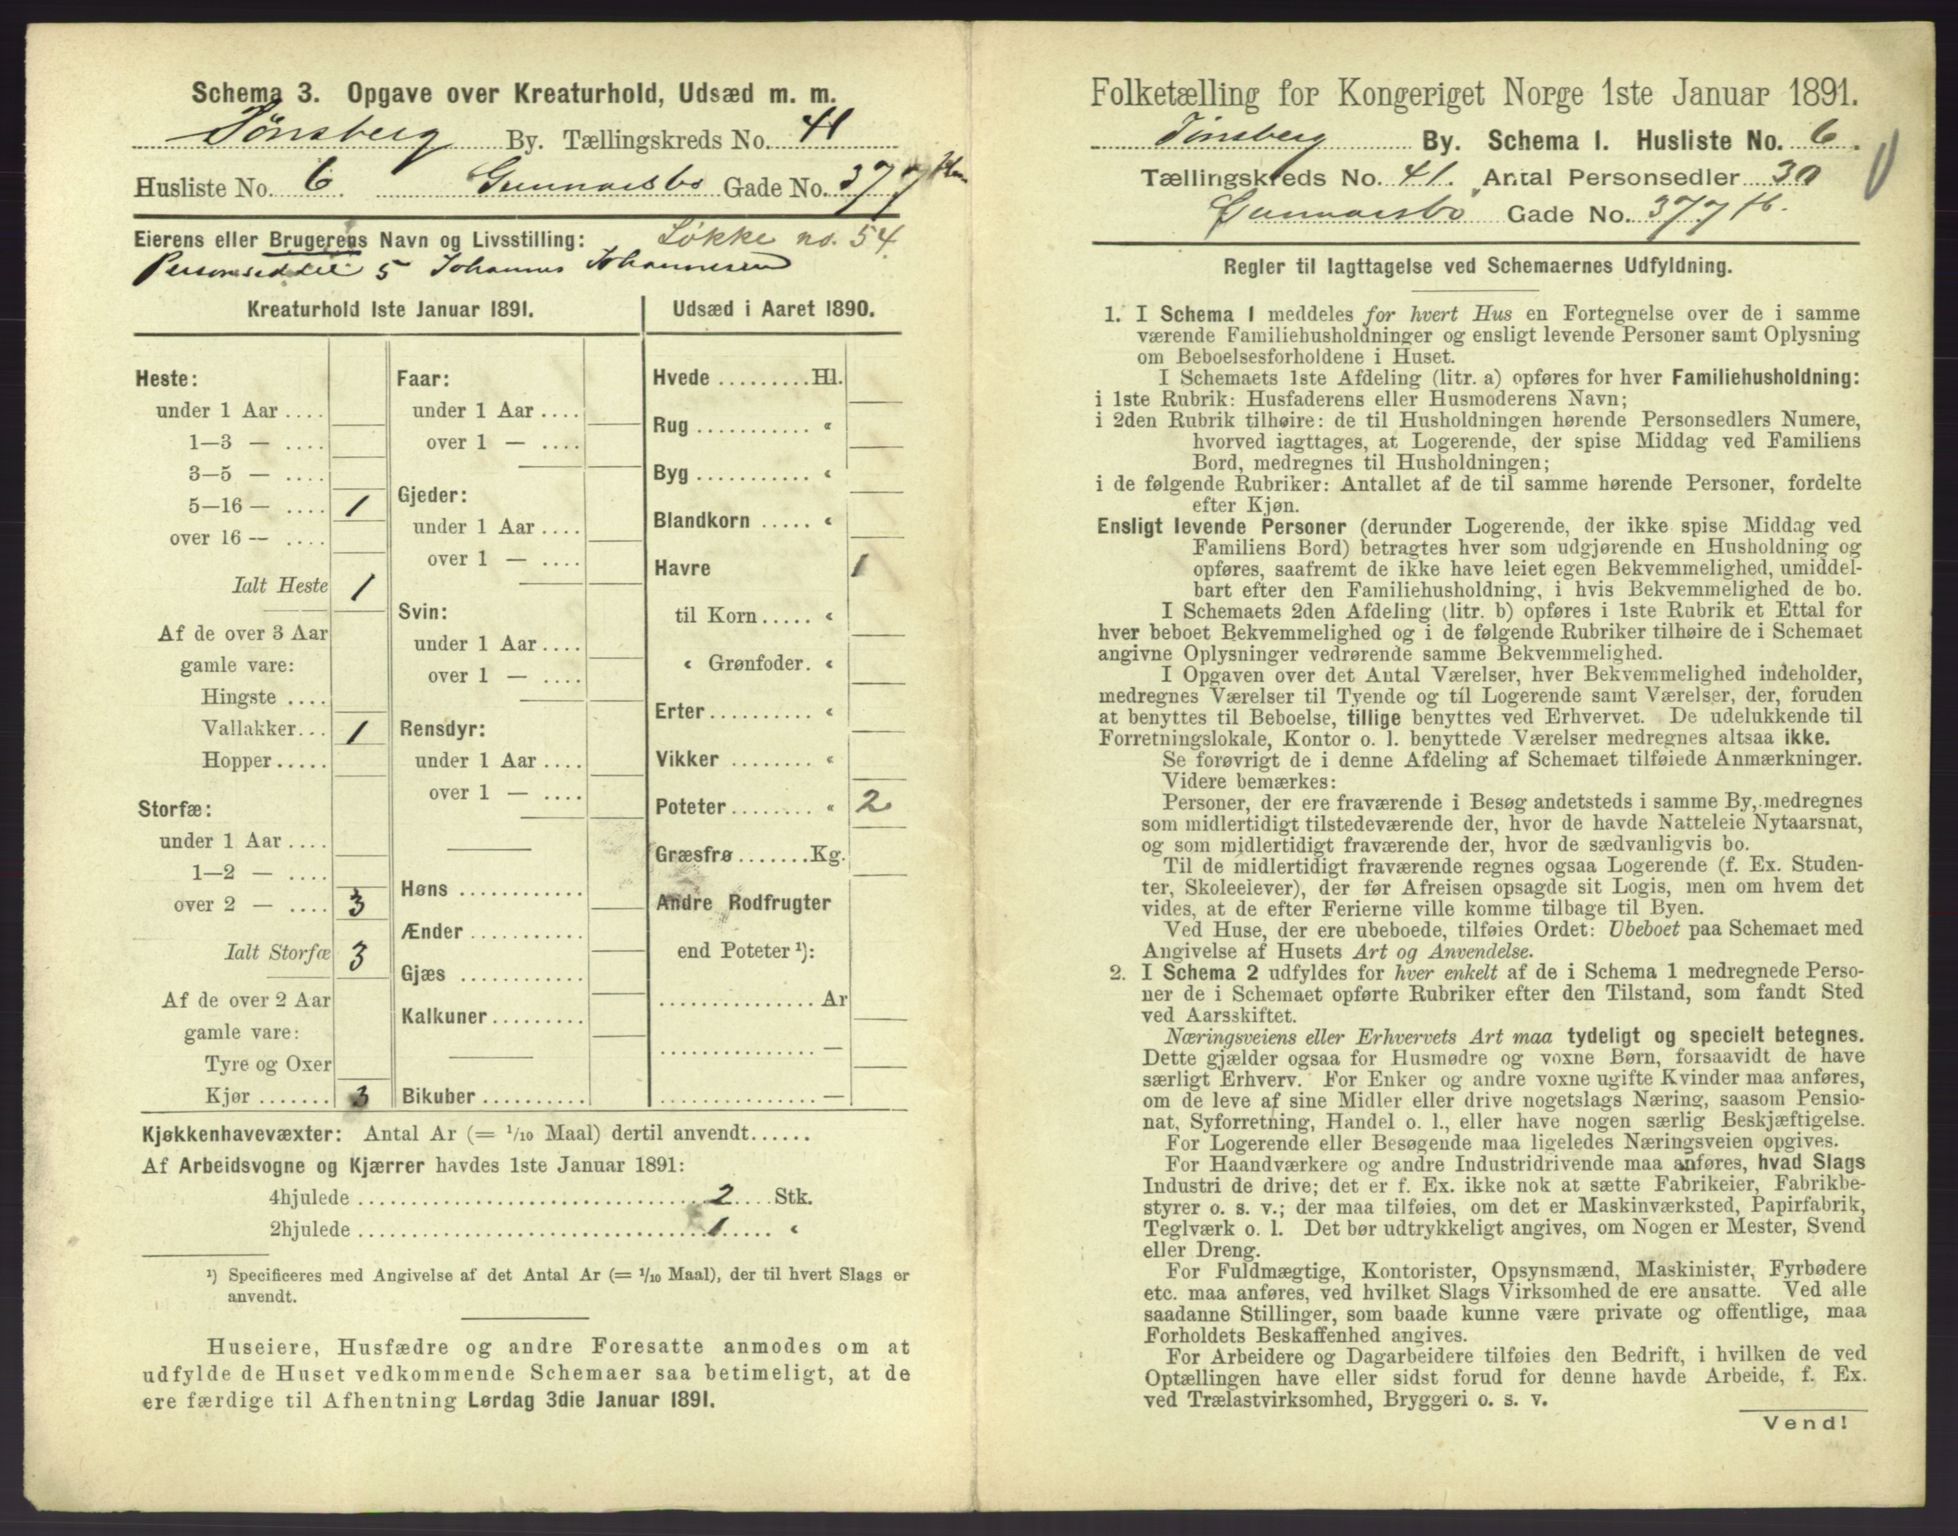 Schema 3. Opgave over Kreaturhold, Udsæd m. m.
Tønsberg By. Tællingskreds No. 41
Husliste No. 6 Gunnarsbø Gade No. 377
Eierens eller Brugerens Navn og Livsstilling: Løkke no. 54.
Personseddel 5 Johannes Johannesen
Kreaturhold 1ste Januar 1891.
Heste:
under 1 Aar ....
1—3 — ....
3—5 — ....
5—16 — .... 1
over 16 — ....
Ialt Heste 1
Af de over 3 Aar
gamle vare:
Hingste ....
Vallakker... 1
Hopper .....
Storfæ:
under 1 Aar ....
1—2 — ....
over 2 — .... 3
Ialt Storfæ 3
Af de over 2 Aar
gamle vare:
Tyre og Oxer
Kjør ....... 3
Faar:
under 1 Aar ....
over 1 — ....
Gjeder:
under 1 Aar ....
over 1 — ....
Svin:
under 1 Aar ....
over 1 — ....
Rensdyr:
under 1 Aar ....
over 1 — ....
Høns ............
Ænder ...........
Gjæs ............
Kalkuner.........
Bikuber ..........
Udsæd i Aaret 1890.
Hvede .........Hl.
Rug ........... «
Byg ........... «
Blandkorn ..... «
Havre 1
til Korn..... «
« Grønfoder. «
Erter.......... «
Vikker ........ «
Poteter........ « 2
Græsfrø.......Kg.
Andre Rodfrugter
end Poteter ¹):
............... Ar
............... —
............... —
Kjøkkenhavevæxter: Antal Ar (= 1/10 Maal) dertil anvendt......
Af Arbeidsvogne og Kjærrer havdes 1ste Januar 1891:
4hjulede .................................. 2 .... Stk.
2hjulede .................................. 1 ..... «
¹) Specificeres med Angivelse af det Antal Ar (= 1/10 Maal), der til hvert Slags er
anvendt.
Huseiere, Husfædre og andre Foresatte anmodes om at
udfylde de Huset vedkommende Schemaer saa betimeligt, at de
ere færdige til Afhentning Lørdag 3die Januar 1891.
Folketælling for Kongeriget Norge 1ste Januar 1891.
Tønsberg By. Schema I. Husliste No. 6.
Tællingskreds No. 41. Antal Personsedler 30
Gunnarsbø Gade No. 377
Regler til Iagttagelse ved Schemaernes Udfyldning.
1. I Schema 1 meddeles for hvert Hus en Fortegnelse over de i samme
værende Familiehusholdninger og ensligt levende Personer samt Oplysning
om Beboelsesforholdene i Huset.
I Schemaets 1ste Afdeling (litr. a) opføres for hver Familiehusholdning:
i 1ste Rubrik: Husfaderens eller Husmoderens Navn;
i 2den Rubrik tilhøire: de til Husholdningen hørende Personsedlers Numere,
hvorved iagttages, at Logerende, der spise Middag ved Familiens
Bord, medregnes til Husholdningen;
i de følgende Rubriker: Antallet af de til samme hørende Personer, fordelte
efter Kjøn.
Ensligt levende Personer (derunder Logerende, der ikke spise Middag ved
Familiens Bord) betragtes hver som udgjørende en Husholdning og
opføres, saafremt de ikke have leiet egen Bekvemmelighed, umiddel-
bart efter den Familiehusholdning, i hvis Bekvemmelighed de bo.
I Schemaets 2den Afdeling (litr. b) opføres i 1ste Rubrik et Ettal for
hver beboet Bekvemmelighed og i de følgende Rubriker tilhøire de i Schemaet
angivne Oplysninger vedrørende samme Bekvemmelighed.
I Opgaven over det Antal Værelser, hver Bekvemmelighed indeholder,
medregnes Værelser til Tyende og til Logerende samt Værelser, der, foruden
at benyttes til Beboelse, tillige benyttes ved Erhvervet. De udelukkende til
Forretningslokale, Kontor o. l. benyttede Værelser medregnes altsaa ikke.
Se forøvrigt de i denne Afdeling af Schemaet tilføiede Anmærkninger.
Videre bemærkes:
Personer, der ere fraværende i Besøg andetsteds i samme By, medregnes
som midlertidigt tilstedeværende der, hvor de havde Natteleie Nytaarsnat,
og som midlertidigt fraværende der, hvor de sædvanligvis bo.
Til de midlertidigt fraværende regnes ogsaa Logerende (f. Ex. Studen-
ter, Skoleelever), der før Afreisen opsagde sit Logis, men om hvem det
vides, at de efter Ferierne ville komme tilbage til Byen.
Ved Huse, der ere ubeboede, tilføies Ordet: Ubeboet paa Schemaet med
Angivelse af Husets Art og Anvendelse.
2. I Schema 2 udfyldes for hver enkelt af de i Schema 1 medregnede Perso-
ner de i Schemaet opførte Rubriker efter den Tilstand, som fandt Sted
ved Aarsskiftet.
Næringsveiens eller Erhvervets Art maa tydeligt og specielt betegnes.
Dette gjælder ogsaa for Husmødre og voxne Børn, forsaavidt de have
særligt Erhverv. For Enker og andre voxne ugifte Kvinder maa anføres,
om de leve af sine Midler eller drive nogetslags Næring, saasom Pensio-
nat, Syforretning, Handel o. l., eller have nogen særlig Beskjæftigelse.
For Logerende eller Besøgende maa ligeledes Næringsveien opgives.
For Haandværkere og andre Industridrivende maa anføres, hvad Slags
Industri de drive; det er f. Ex. ikke nok at sætte Fabrikeier, Fabrikbe-
styrer o. s. v.; der maa tilføies, om det er Maskinværksted, Papirfabrik,
Teglværk o. l. Det bør udtrykkeligt angives, om Nogen er Mester, Svend
eller Dreng.
For Fuldmægtige, Kontorister, Opsynsmænd, Maskinister, Fyrbødere
etc. maa anføres, ved hvilket Slags Virksomhed de ere ansatte. Ved alle
saadanne Stillinger, som baade kunne være private og offentlige, maa
Forholdets Beskaffenhed angives.
For Arbeidere og Dagarbeidere tilføies den Bedrift, i hvilken de ved
Optællingen have eller sidst forud for denne havde Arbeide, f. Ex.
ved Trælastvirksomhed, Bryggeri o. s. v.
Vend!